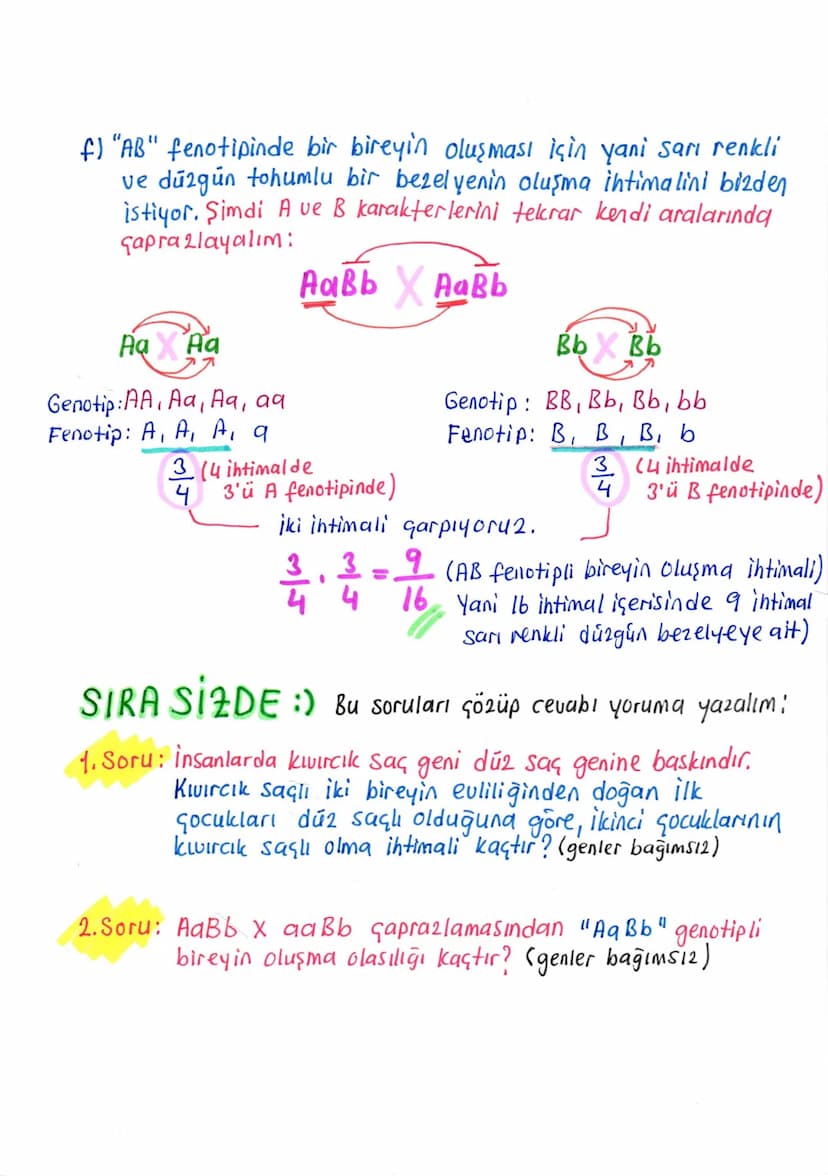 f) "AB" fenotipinde bir bireyin oluşması için yani sarı renkli
ve düzgün tohumlu bir bezelyenin oluşma ihtimalini bizden
istiyor. Şimdi A ve B karakterlerini tekrar kendi aralarında
çaprazlayalım:
AaBb X AaBb
Aa X Aa
Bb X Bb
Genotip: AA, Aa, Aa, aa
Fenotip: A, A, A, a
3/4 (4 ihtimalde
3'ü A fenotipinde)
Genotip: BB, Bb, Bb, bb
Fenotip: B, B, B, b
3/4 (4 ihtimalde
3'ü B fenotipinde)
İki ihtimali çarpıyoruz.
3/4 . 3/4 = 9/16 (AB fenotipli bireyin oluşma ihtimali)
Yani 16 ihtimal içerisinde 9 ihtimal
sarı renkli düzgün bezelyeye ait)
SIRA SİZDE :) Bu soruları çözüp cevabı yoruma yazalım:
1. Soru: İnsanlarda kıvırcık saç geni düz saç genine baskındır.
Kıvırcık saçlı iki bireyin evliliğinden doğan ilk
çocukları düz saçlı olduğuna göre, ikinci çocuklarının
kıvırcık saçlı olma ihtimali kaçtır? (genler bağımsız)
2. Soru: AaBb X aaBb çaprazlamasından "AaBb" genotipli
bireyin oluşma olasılığı kaçtır? (genler bağımsız)